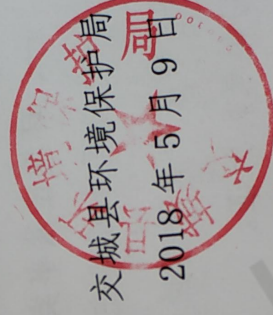 交城县环境保护局
2018年5月9日